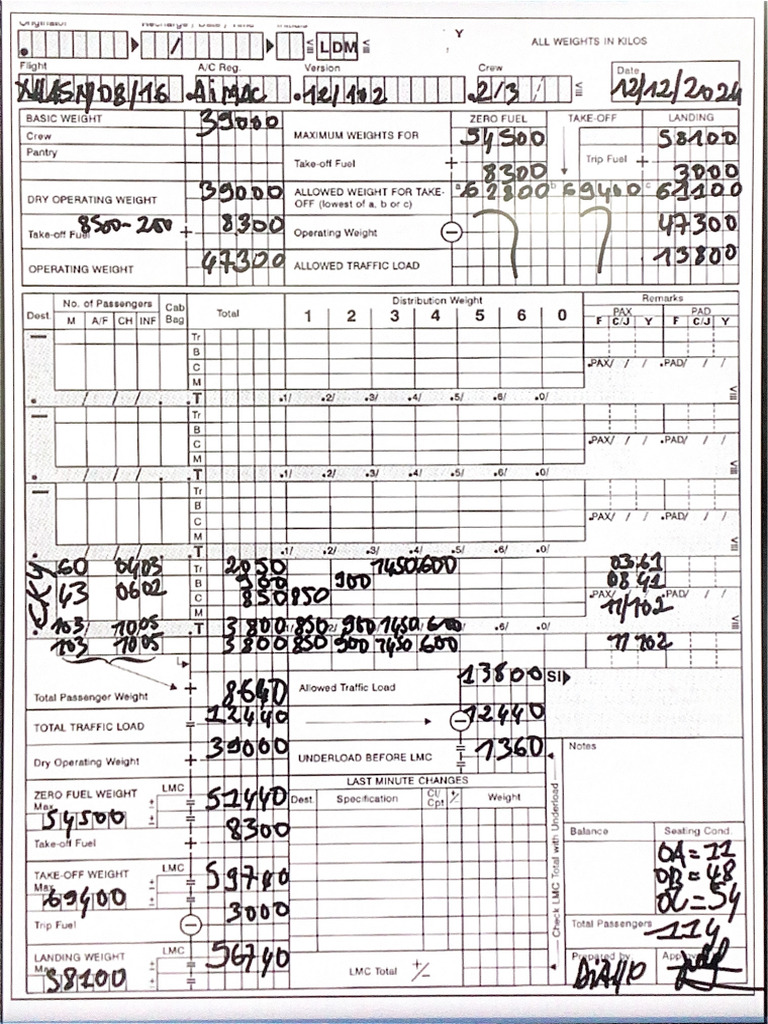 Originator Recharge / Date / Time Initials
LDM Y ALL WEIGHTS IN KILOS
Flight A/C Reg. Version Crew Date
/08/16 .12/102 .2/3 / 12/12/2024
BASIC WEIGHT 39000 ZERO FUEL TAKE-OFF LANDING
Crew MAXIMUM WEIGHTS FOR 54500 58100
Pantry Take-off Fuel + 8300 Trip Fuel + 3000
DRY OPERATING WEIGHT 39000 ALLOWED WEIGHT FOR TAKE-OFF (lowest of a, b or c) a 62800 b 69400 c 61100
Take-off Fuel 8500-200 + 8300 Operating Weight - 47300
OPERATING WEIGHT 47300 ALLOWED TRAFFIC LOAD 13800
Dest. No. of Passengers Cab Bag Total Distribution Weight Remarks
M A/F CH INF 1 2 3 4 5 6 0 PAX PAD
F C/J Y F C/J Y
Tr
B
C .PAX/ / / .PAD/ / /
M
. / / / .T .1/ .2/ .3/ .4/ .5/ .6/ .0/
Tr
B
C .PAX/ / / .PAD/ / /
M
. / / / .T .1/ .2/ .3/ .4/ .5/ .6/ .0/
Tr
B
C .PAX/ / / .PAD/ / /
M
. / / / .T .1/ .2/ .3/ .4/ .5/ .6/ .0/
.CKY. 60 04 03 Tr 2050 1450 600 03 61
43 06 02 B 900 900 08 41
C 850 850 11/102
M
103 10 05 .T 3800 850 900 1450 600 .6/ .0/
103 10 05 3800 850 900 1450 600 11 102
Total Passenger Weight + 8640 Allowed Traffic Load 13800 SI
TOTAL TRAFFIC LOAD = 12440 - 12440
Dry Operating Weight + 39000 UNDERLOAD BEFORE LMC = 1360 Notes
ZERO FUEL WEIGHT LMC 51440 LAST MINUTE CHANGES
Max 54500 ± = Dest. Specification Cl/Cpt +/- Weight
Take-off Fuel + 8300 Balance Seating Cond.
TAKE-OFF WEIGHT LMC 59740 OA = 11
Max 69400 OB = 48
Trip Fuel - 3000 OC = 54
Check LMC Total with Underload
Total Passengers 114
LANDING WEIGHT LMC 56740
Max 58100 LMC Total +/- Prepared by DiAllo